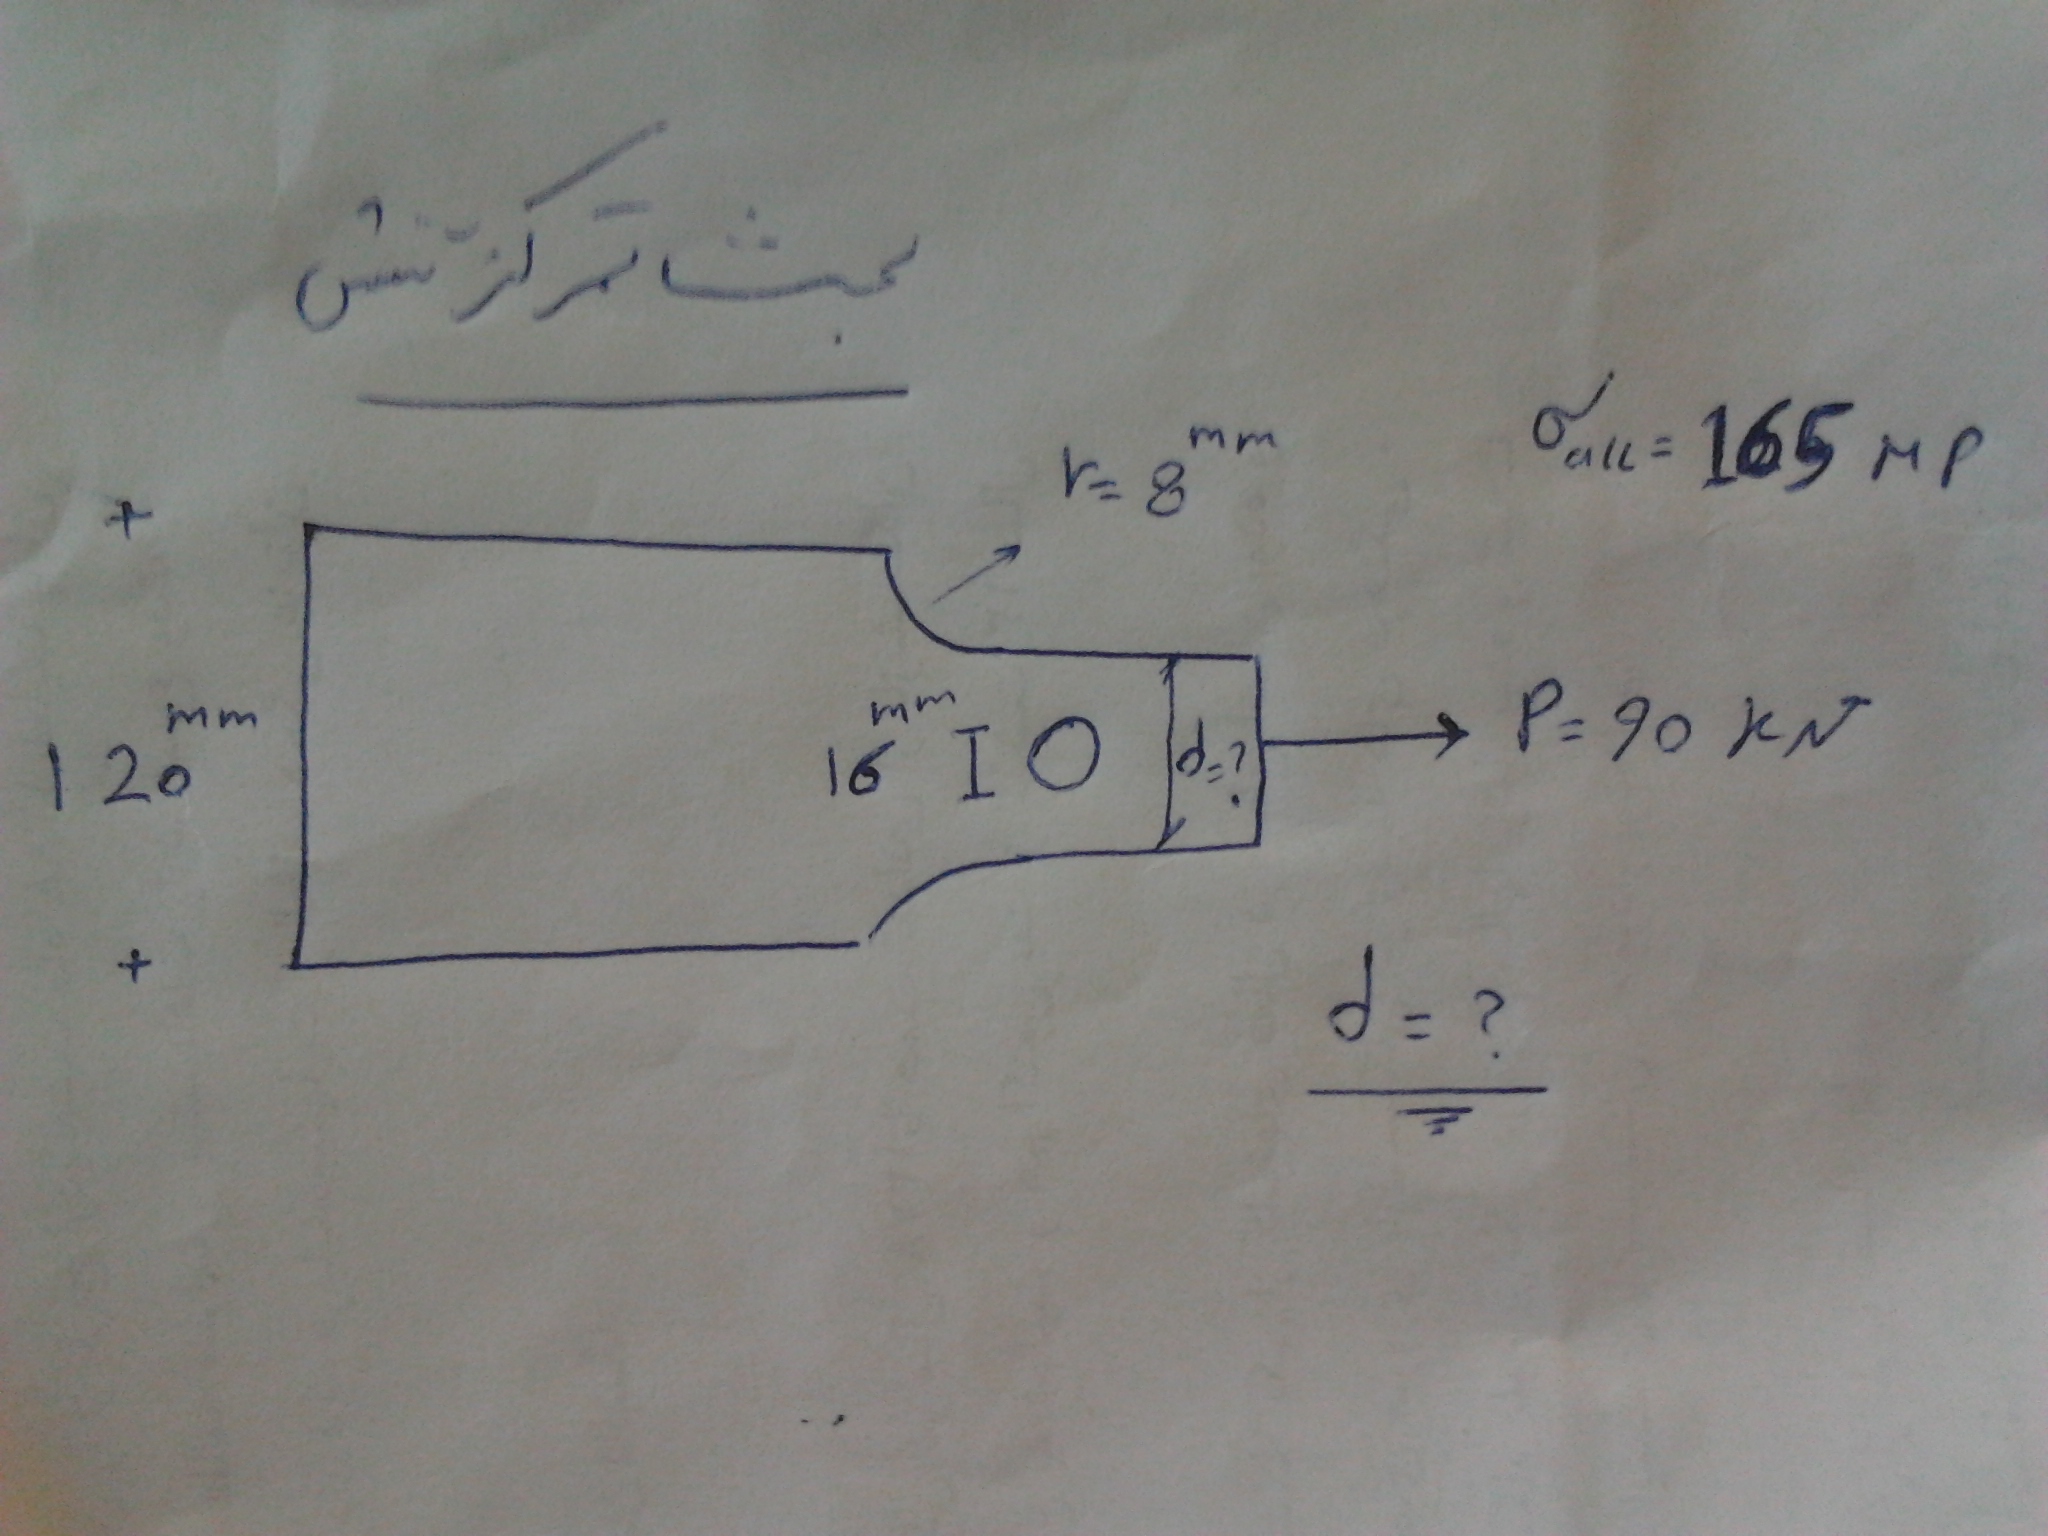 بحث تمرکز تنش
r= 8 mm
σall = 165 MP
120 mm
16 mm
d=?
P= 90 KN
d = ?